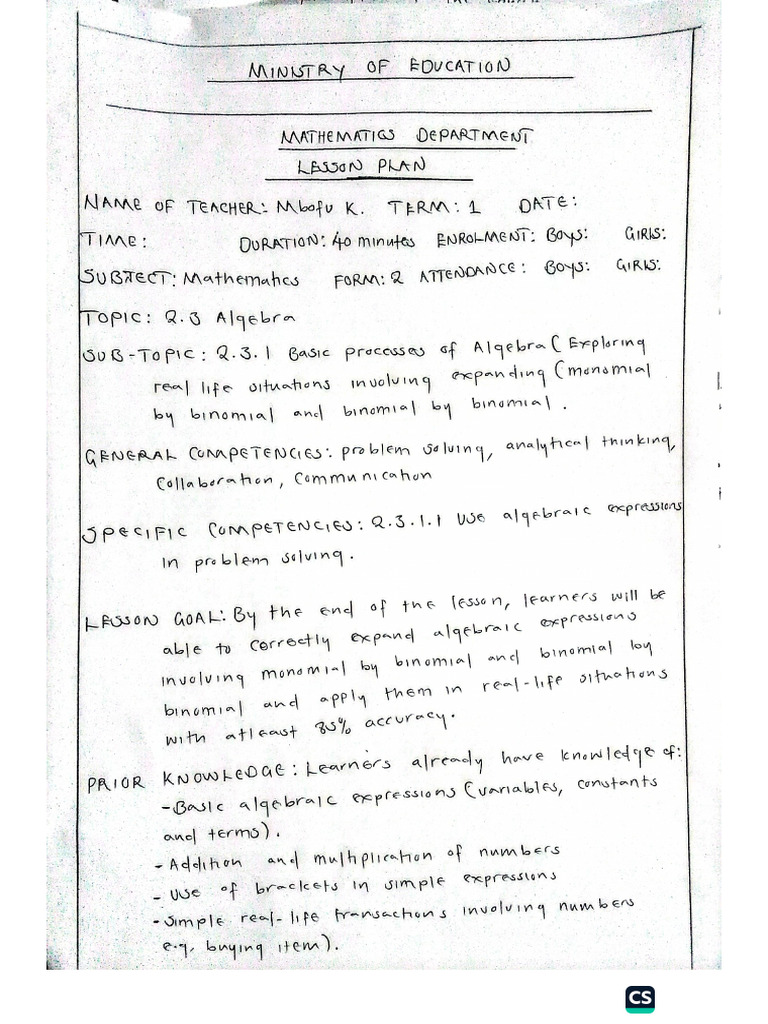 MINISTRY OF EDUCATION
MATHEMATICS DEPARTMENT
LESSON PLAN
NAME OF TEACHER: Mbofu K. TERM: 1 DATE:
TIME: DURATION: 40 minutes ENROLMENT: Boys: GIRLS:
SUBJECT: Mathematics FORM: 2 ATTENDANCE: BOYS: GIRLS:
TOPIC: 2.3 Algebra
SUB-TOPIC: 2.3.1 Basic processes of Algebra (Exploring
real life situations involving expanding (monomial
by binomial and binomial by binomial.
GENERAL COMPETENCIES: problem solving, analytical thinking,
Collaboration, Communication
SPECIFIC COMPETENCIES: 2.3.1.1 Use algebraic expressions
in problem solving.
LESSON GOAL: By the end of the lesson, learners will be
able to correctly expand algebraic expressions
involving monomial by binomial and binomial by
binomial and apply them in real-life situations
with atleast 85% accuracy.
PRIOR KNOWLEDGE: Learners already have knowledge of:
- Basic algebraic expressions (variables, constants
and terms).
- Addition and multiplication of numbers
- Use of brackets in simple expressions
- Simple real-life transactions involving numbers
e.g. buying item).
CS